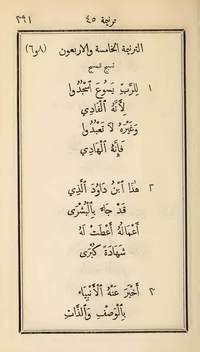 ٢٩١ ترنيمة ٤٥
الترنيمة الخامسة والاربعون (٨و٦)
تسبيح المسيح
١ لِلرَّبِّ يَسُوعَ ٱسْجُدُوا
لِأَنَّهُ ٱلْفَادِي
وَغَيْرَهُ لَا تَعْبُدُوا
فَإِنَّهُ ٱلْهَادِي
٢ هٰذَا ٱبْنُ دَاوُدَ ٱلَّذِي
قَدْ جَاءَ بِٱلْبُشْرَى
أَعْمَالُهُ أَعْطَتْ لَهُ
شَهَادَةً كُبْرَى
٣ أَخْبَرَ عَنْهُ ٱلْأَنْبِيَاء
بِٱلْوَصْفِ وَٱلذَّاتِ